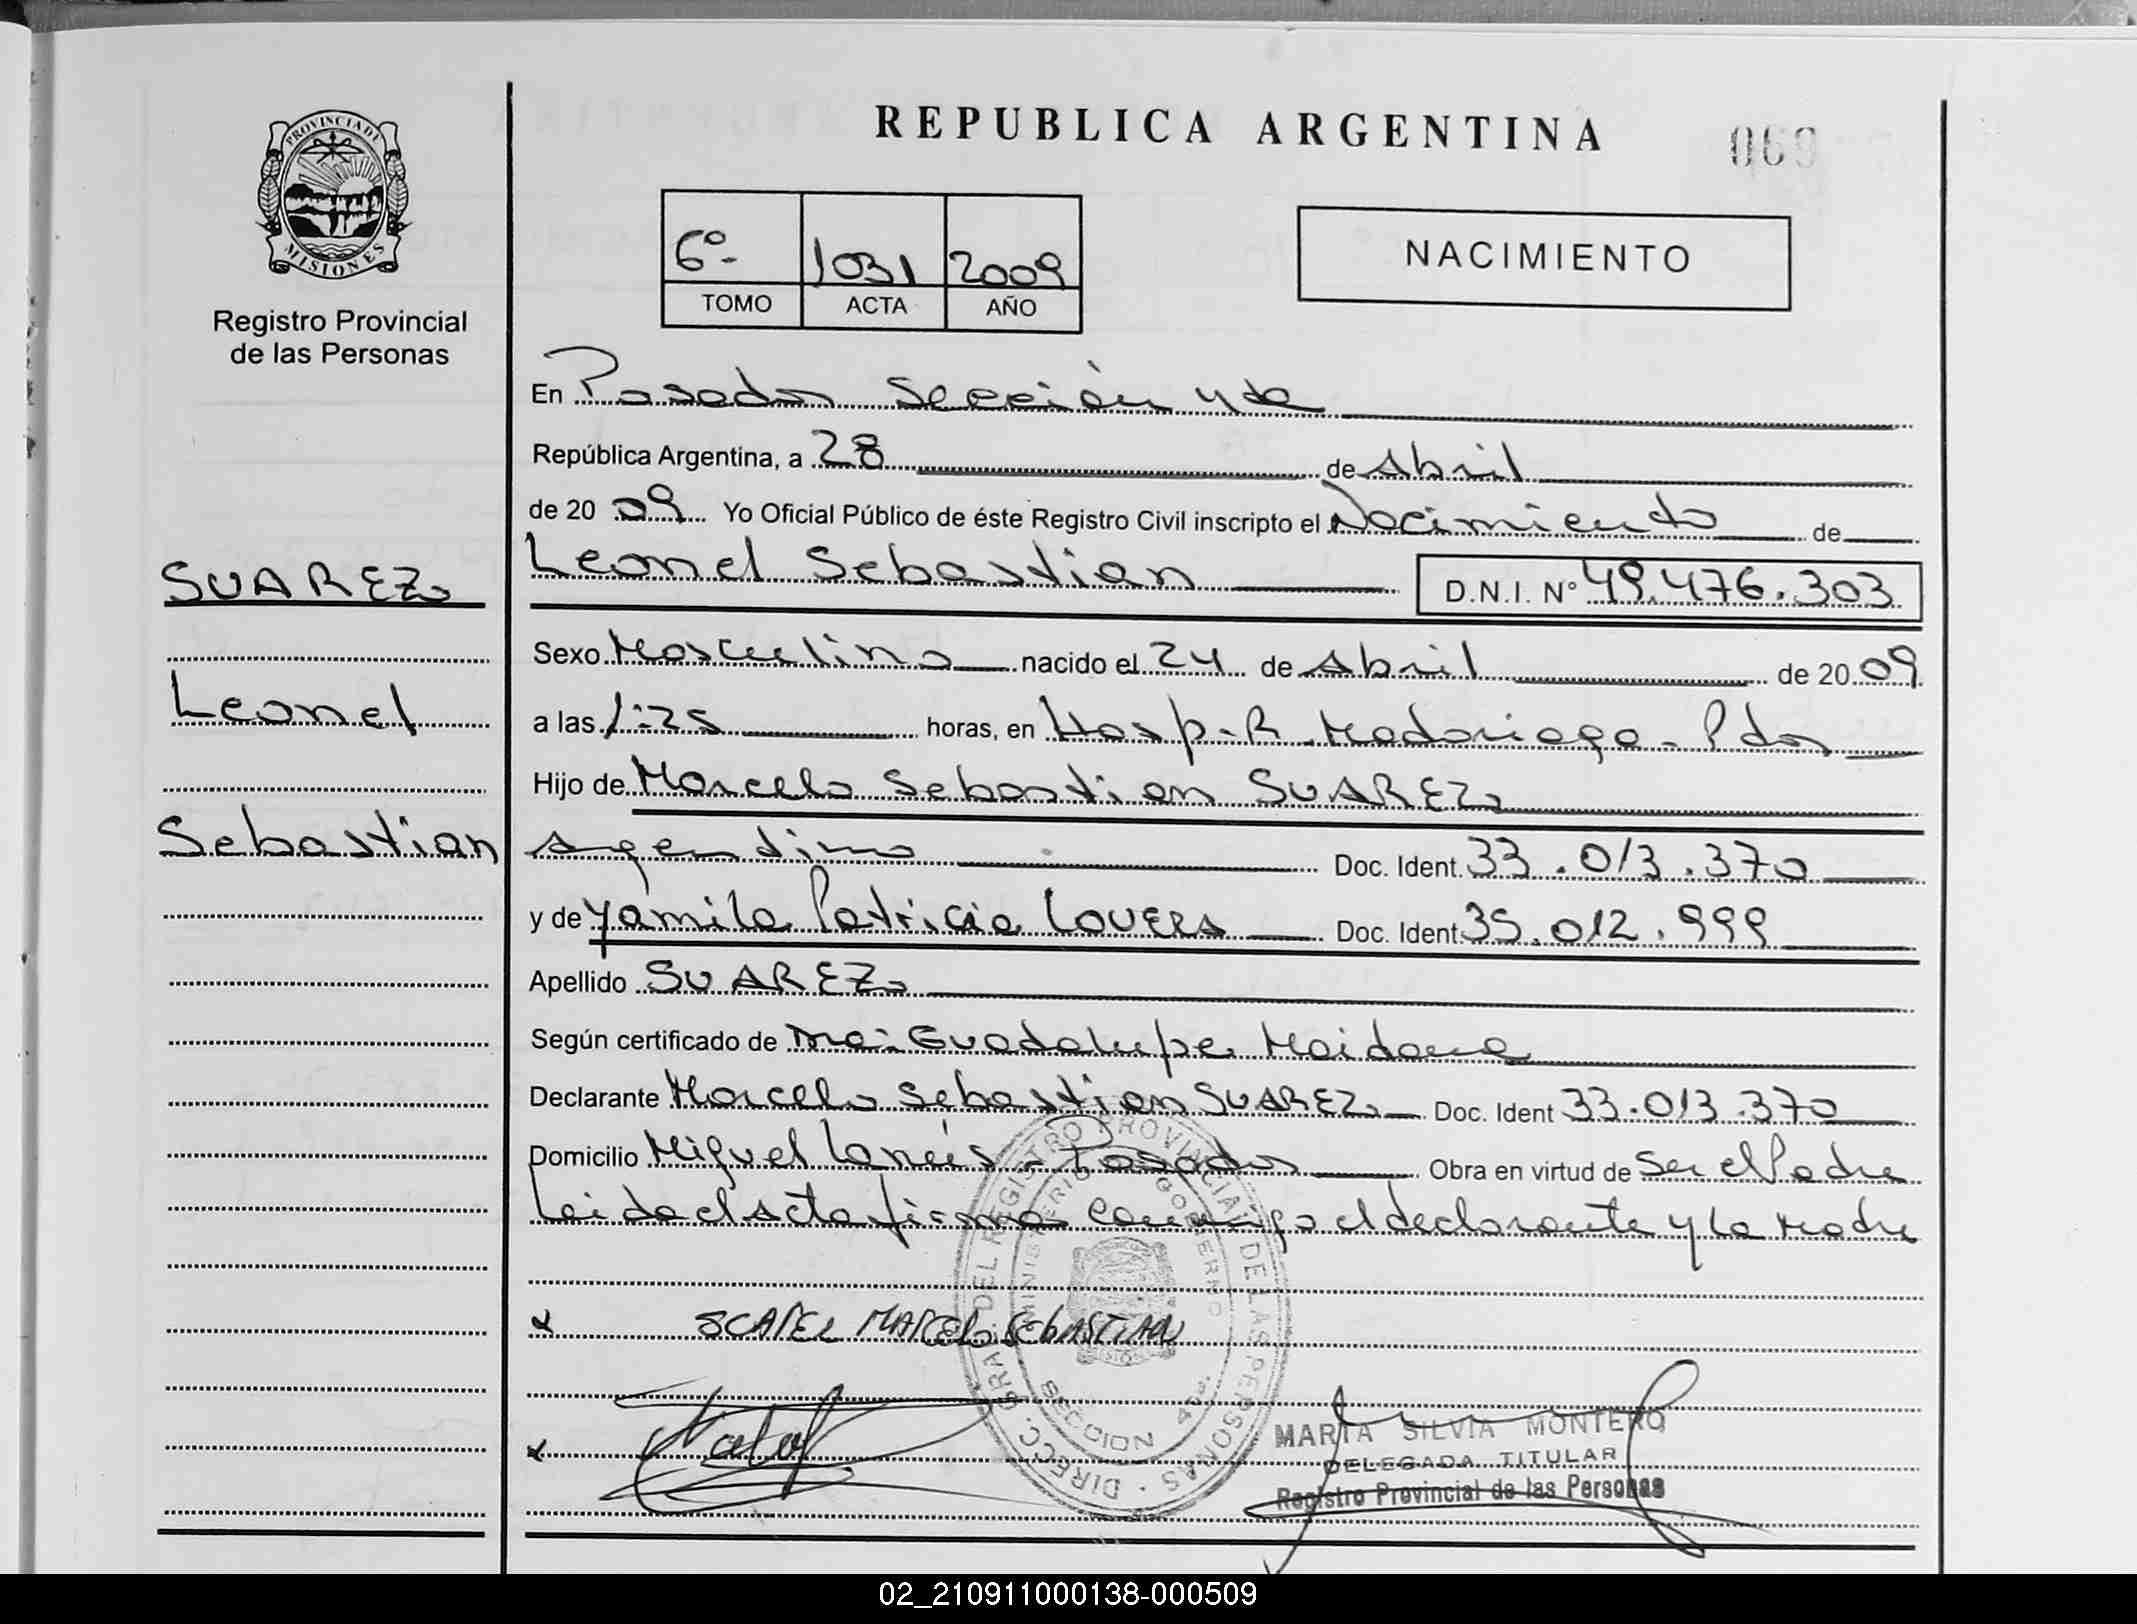 PROVINCIA DE
MISIONES
Registro Provincial
de las Personas
SUAREZ
Leonel
Sebastian
REPUBLICA ARGENTINA
069
6º- 1031 2009
TOMO ACTA AÑO
NACIMIENTO
En Posadas Sección 4ta
República Argentina, a 28 de Abril
de 20 09 Yo Oficial Público de éste Registro Civil inscripto el Nacimiento de
Leonel Sebastian D.N.I. Nº 49.476.303
Sexo Masculino nacido el 24 de Abril de 20 09
a las 1:25 horas, en Hosp. R. Madariaga - Pdas
Hijo de Marcelo Sebastian SUAREZ
Argentino Doc. Ident. 33.013.370
y de Yamila Patricia LOVERA Doc. Ident. 35.012.999
Apellido SUAREZ
Según certificado de Ma: Guadalupe Maidana
Declarante Marcelo Sebastian SUAREZ Doc. Ident 33.013.370
Domicilio Miguel Lanús - Posadas Obra en virtud de Ser el Padre
Leida el Acta firma conmigo el declarante y la Madre
x SUAREZ MARCELO SEBASTIAN
x
DIRECC. GRAL. DEL REGISTRO PROVINCIAL DE LAS PERSONAS
MINISTERIO GOBIERNO
SECCION 4ta.
MARIA SILVIA MONTERO
DELEGADA TITULAR
Registro Provincial de las Personas
02_210911000138-000509